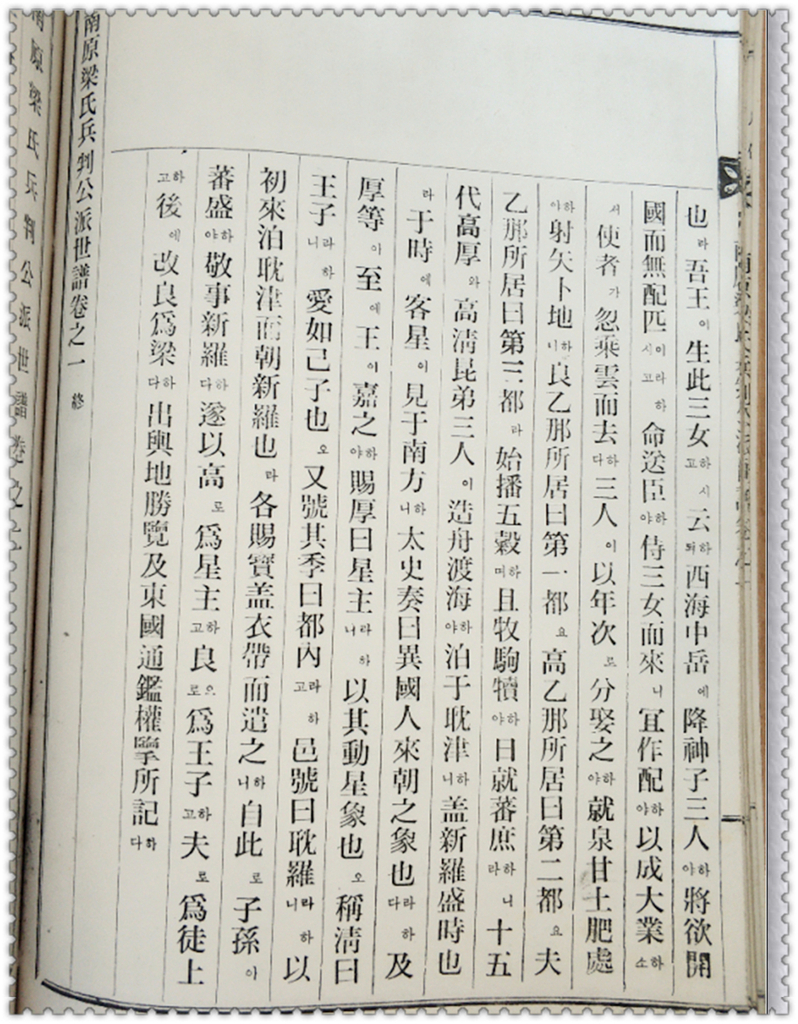 也라吾王이生此三女하시고云호되西海中岳에降神子三人하야將欲開
國而無配匹이라하시고命送臣하야侍三女而來니冝作配하야以成大業하소
서使者가忽乘雲而去하다三人이以年次로分娶之하야就泉甘土肥處
하야射矢卜地하니良乙那所居曰第一都요高乙那所居曰第二都요夫
乙那所居曰第三都라始播五穀하며且牧駒犢하야日就蕃庶하니라十五
代高厚와高淸昆弟三人이造舟渡海하야泊于耽津하니盖新羅盛時也
라于時에客星이見于南方하니太史奏曰異國人來朝之象也라하다及
厚等이至에王이嘉之하야賜厚曰星主라하니以其動星象也오稱淸曰
王子라하니愛如己子也오又號其季曰都內라하고邑號曰耽羅라하니以
初來泊耽津而朝新羅也라各賜寶盖衣帶而遣之하니自此로子孫이
蕃盛하야敬事新羅하다遂以高로爲星主하고良으로爲王子하고夫로爲徒上
하고後에改良爲梁하다出輿地勝覽及東國通鑑權擥所記하다
南原梁氏兵判公派世譜卷之一 修
南原梁氏兵判公派世譜卷之